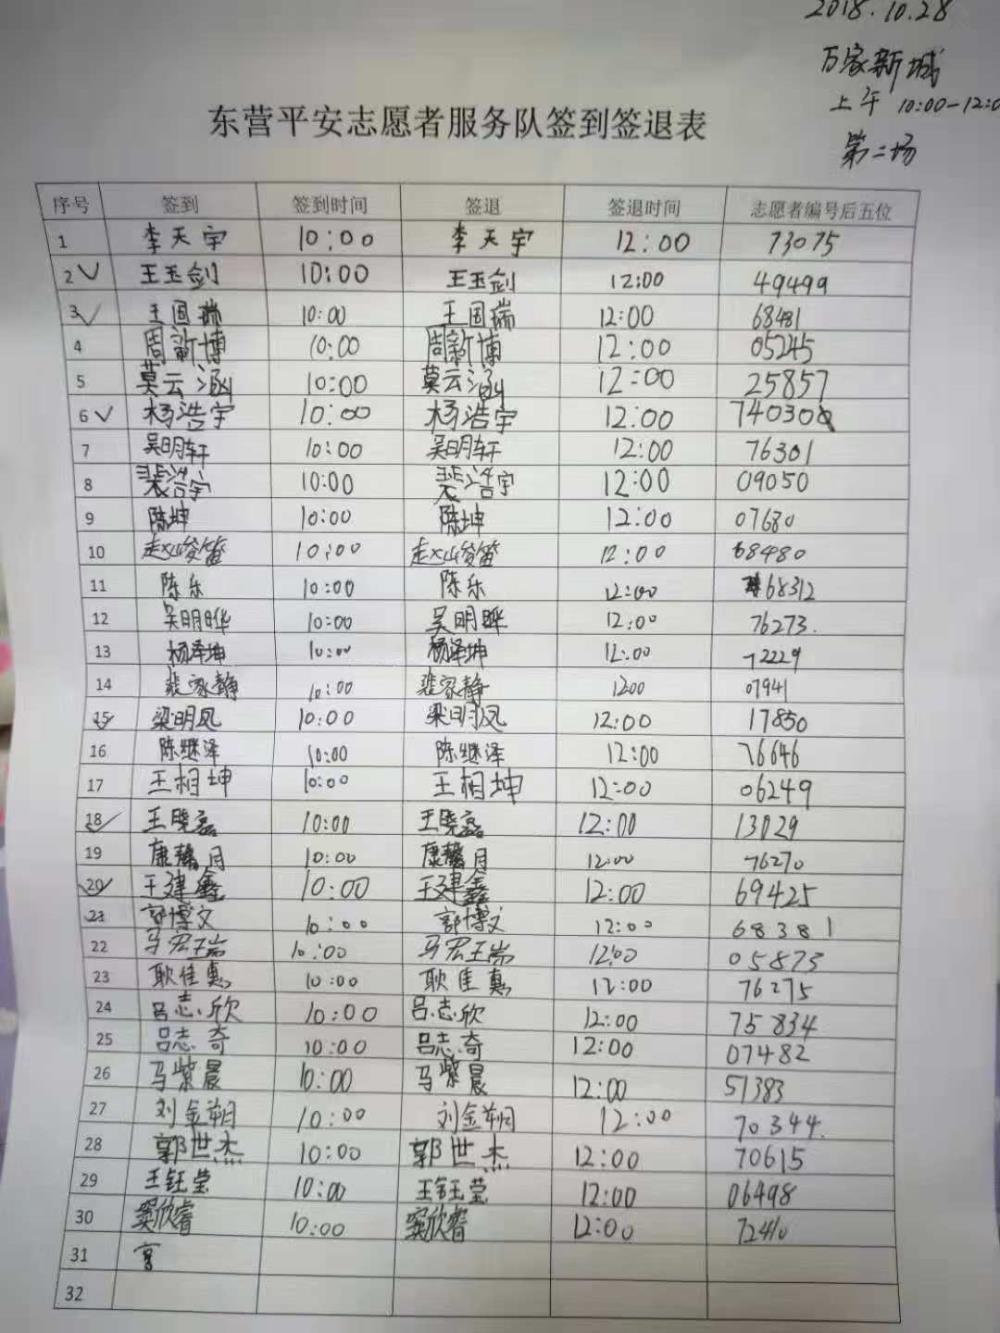 2018.10.28
万家新城
上午 10:00-12:0
第二场
东营平安志愿者服务队签到签退表
序号 签到 签到时间 签退 签退时间 志愿者编号后五位
1 李天宇 10:00 李天宇 12:00 73075
2 王玉剑 10:00 王玉剑 12:00 49499
3 王国瑞 10:00 王国瑞 12:00 68481
4 周新博 10:00 周新博 12:00 05245
5 莫云涵 10:00 莫云涵 12:00 25857
6 杨浩宇 10:00 杨浩宇 12:00 74030
7 吴明轩 10:00 吴明轩 12:00 76301
8 裴浩宇 10:00 裴浩宇 12:00 09050
9 陈坤 10:00 陈坤 12:00 07680
10 赵峻笛 10:00 赵峻笛 12:00 68480
11 陈乐 10:00 陈乐 12:00 68312
12 吴明晔 10:00 吴明晔 12:00 76273.
13 杨泽坤 10:00 杨泽坤 12:00 72229
14 裴家静 10:00 裴家静 1200 07941
15 梁明凤 10:00 梁明凤 12:00 17850
16 陈继泽 10:00 陈继泽 12:00 76646
17 王相坤 10:00 王相坤 12:00 06249
18 王晓磊 10:00 王晓磊 12:00 13029
19 康馨月 10:00 康馨月 12:00 76270
20 王建鑫 10:00 王建鑫 12:00 69425
21 郭博文 10:00 郭博文 12:00 68381
22 马宏瑞 10:00 马宏瑞 12:00 05873
23 耿佳惠 10:00 耿佳惠 12:00 76275
24 吕志欣 10:00 吕志欣 12:00 75834
25 吕志奇 10:00 吕志奇 12:00 07482
26 马紫晨 10:00 马紫晨 12:00 51383
27 刘金朔 10:00 刘金朔 12:00 70344.
28 郭世杰 10:00 郭世杰 12:00 70615
29 王钰莹 10:00 王钰莹 12:00 06498
30 窦欣睿 10:00 窦欣睿 12:00 72410
31
32